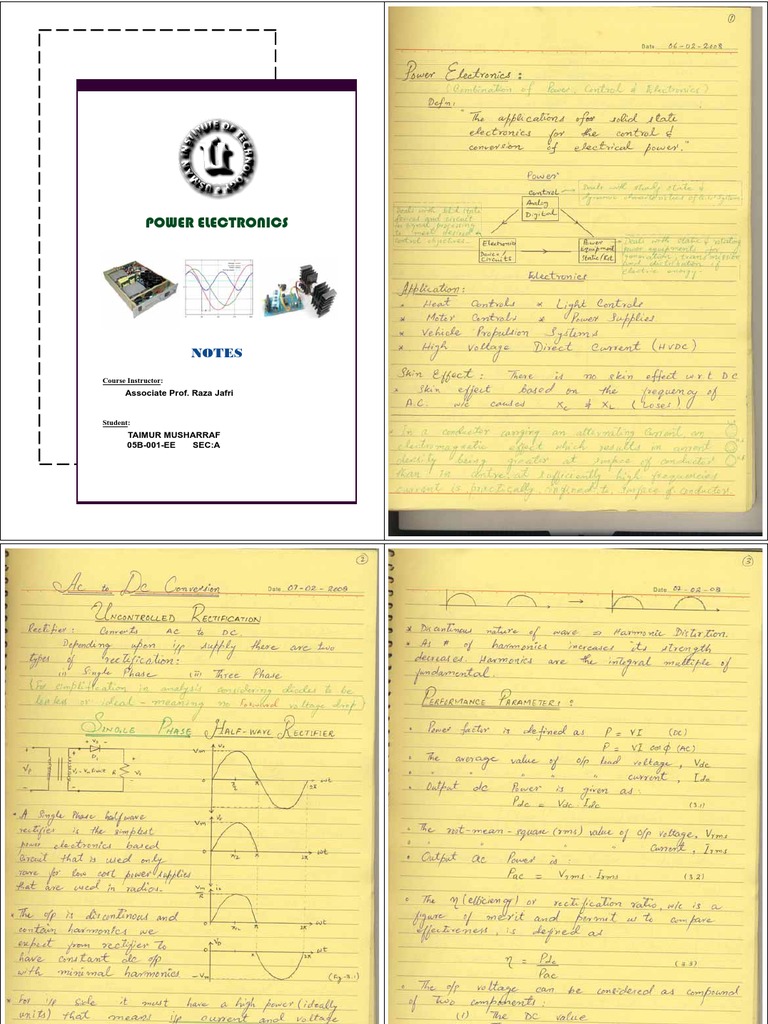 USMAN INSTITUTE OF TECHNOLOGY
POWER ELECTRONICS
NOTES
Course Instructor:
Associate Prof. Raza Jafri
Student:
TAIMUR MUSHARRAF
05B-001-EE SEC:A
1
Date. 06-02-2008
Power Electronics :
(Combination of Power, Control & Electronics)
Defn:
"The applications of solid state
electronics for the control &
conversion of electrical power."
Power
control
Deals with steady state &
dynamic characteristics of
Analog
Digital
Deals with solid state
devices and circuit
signal processing
to meet desired
control objectives.
Electronics
Devices/
Circuits
Power
equipment
Static/Rot.
Deals with static & rotating
power equipments for
generation, transmission
and distribution of
electric energy.
Electronics
Application:
* Heat Controls * Light Controls
* Motor Controls * Power Supplies
* Vehicle Propulsion Systems
* High Voltage Direct Current (HVDC)
Skin Effect : There is no skin effect w.r.t DC
* Skin effect based on the frequency of
A.C. w/c causes Xc & XL (Loses)
* In a conductor carrying an alternating current an
electromagnetic effect which results in current
density being greater at surface of conductor
than in centre. at sufficiently high frequencies
current is practically confined to surface of conductor.
2
Ac to Dc Conversion Date. 07-02-2008
UNCONTROLLED RECTIFICATION
Rectifier: Converts AC to DC.
Depending upon i/p supply there are two
types of rectification:
(i) Single Phase (ii) Three Phase
(For simplification in analysis considering diodes to be
ideal - meaning no Forward voltage drop)
SINGLE PHASE HALF-WAVE RECTIFIER
• A Single Phase halfwave
rectifier is the simplest
power electronics based
circuit that is used only
rare for low cost power supplies
that are used in radios.
• The o/p is discontinous and
contain harmonics we
expect from rectifier to
have constant dc o/p
with minimal harmonics
(Fig-3.1)
* For i/p side it must have a high power (ideally
units) that means i/p current and voltage
3
Date. 07-02-08
* Discontinous nature of wave => Harmonic Distortion.
* As # of harmonics increases its strength
decreases. Harmonics are the integral multiple of
fundamental.
PERFORMANCE PARAMETERS :
• Power factor is defined as P = VI (DC)
P = VI cosϕ (AC)
• The average value of o/p load voltage, Vdc
• " " " " " current, Idc
• Output dc Power is given as:
Pdc = Vdc Idc (3.1)
• The root-mean-square (rms) value of o/p voltage, Vrms
• " " " " Current, Irms
• Output ac Power is:
Pac = Vrms . Irms (3.2)
• The η (efficiency) or rectification ratio, w/c is a
figure of merit and permit us to compare
effectiveness, is defined as
η = Pdc / Pac (3.3)
• The o/p voltage can be considered as compound
of two components:
(1) The DC value